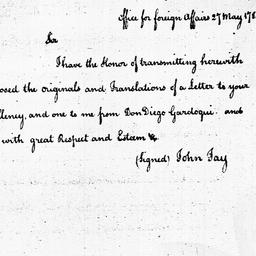 Office for foreign Affairs 27 May 178
Sir
I have the Honor of transmitting herewith
osed the originals and Translations of a Letter to your
llency, and one to me from Don Diego Gardoqui. and
with great Respect and Esteem &
(Signed) John Jay